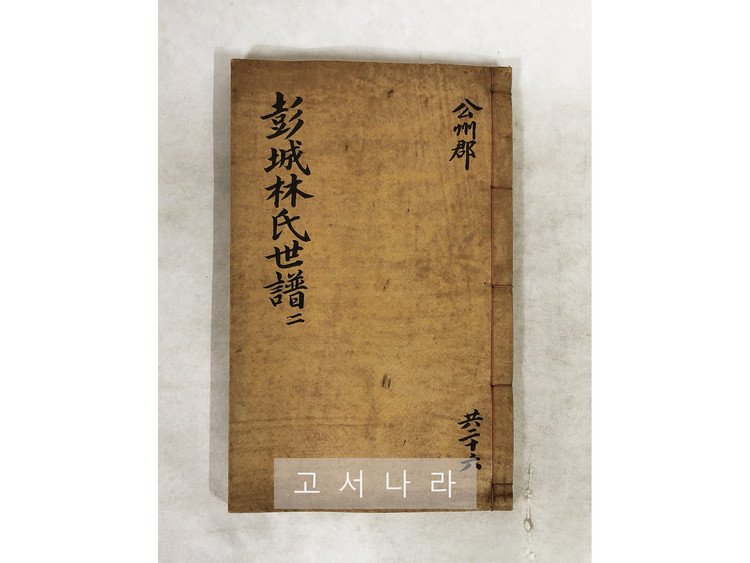 公州郡
彭城林氏世譜 二
共二十六
고서나라